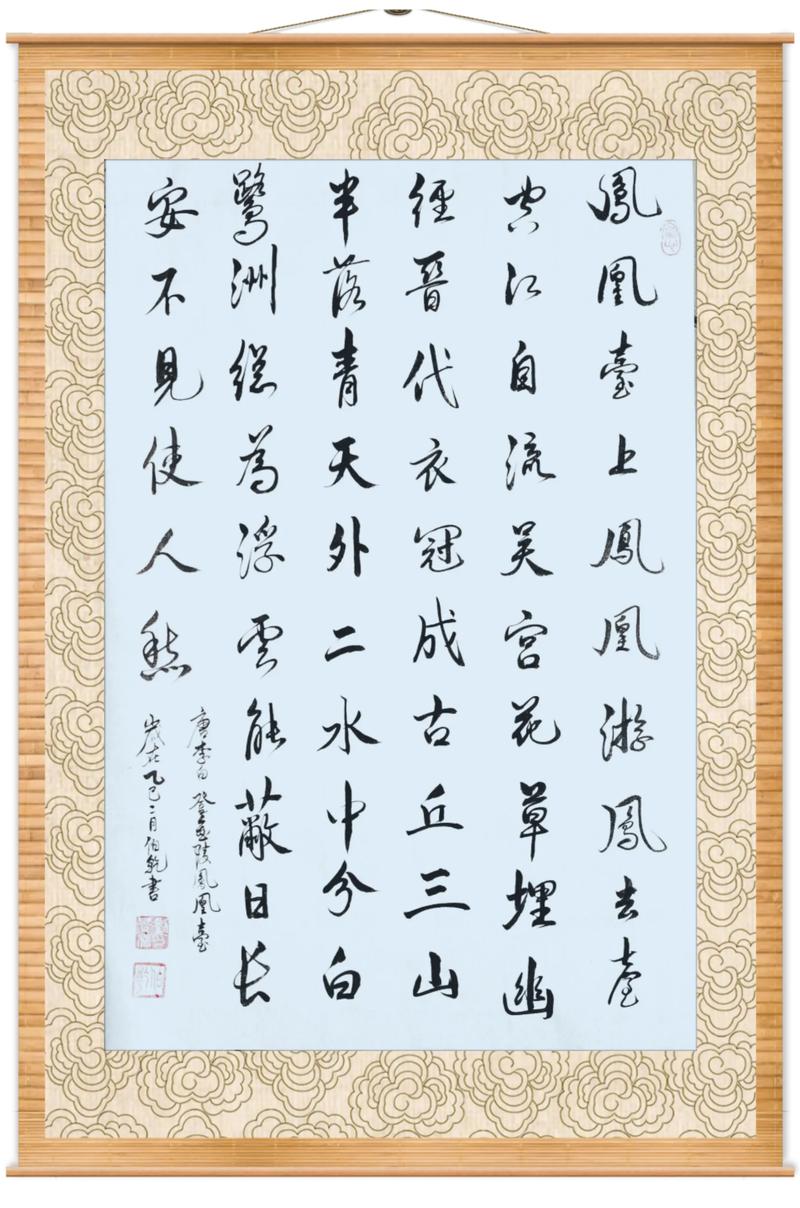 鳳凰臺上鳳凰游鳳去臺
空江自流吴宮花草埋幽
徑晉代衣冠成古丘三山
半落青天外二水中分白
鷺洲總為浮雲能蔽日長
安不見使人愁
唐李白登金陵鳳凰臺
歲在乙巳二月伯乾書